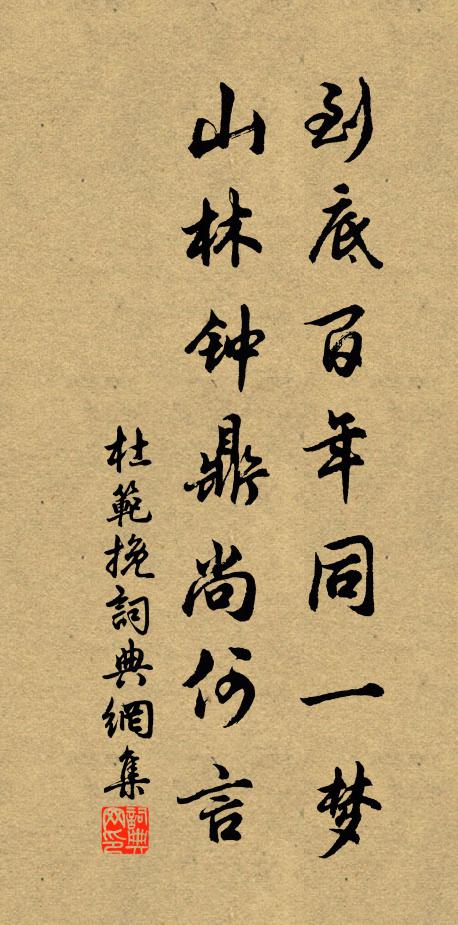 到底百年同一梦
山林钟鼎尚何言
杜範挽詞典網集
詞典網印